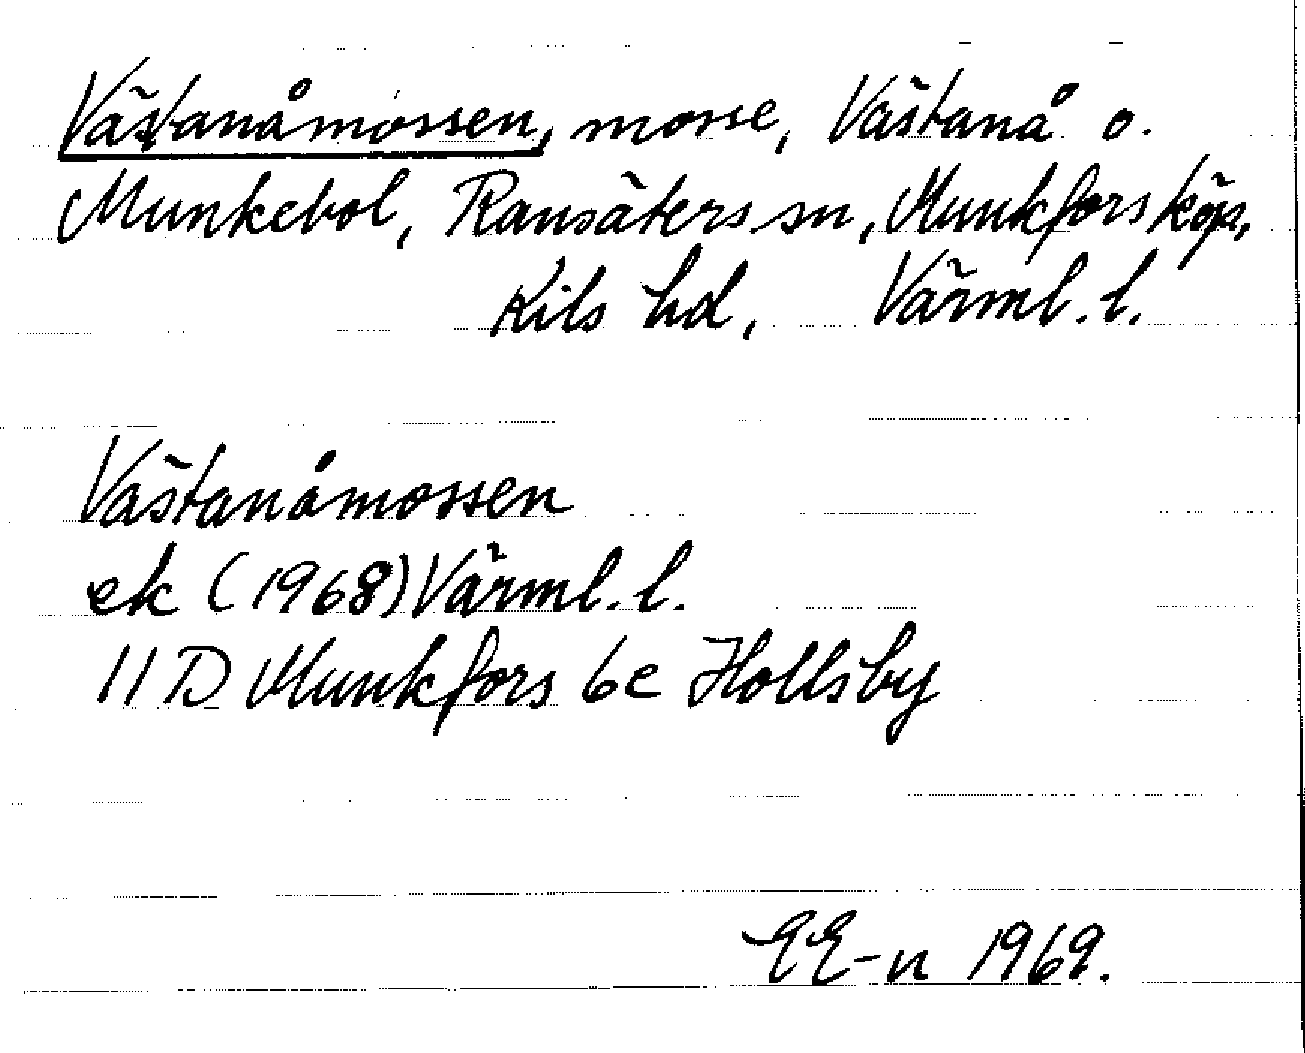 Västanåmossen, mosse, Västanå o.
Munkebol, Ransäters sn, Munkfors köp,
Kils hd, Värml. l.
Västanåmossen
ek (1968) Värml. l.
11 D Munkfors 6e Hollsby
EE-n 1969.